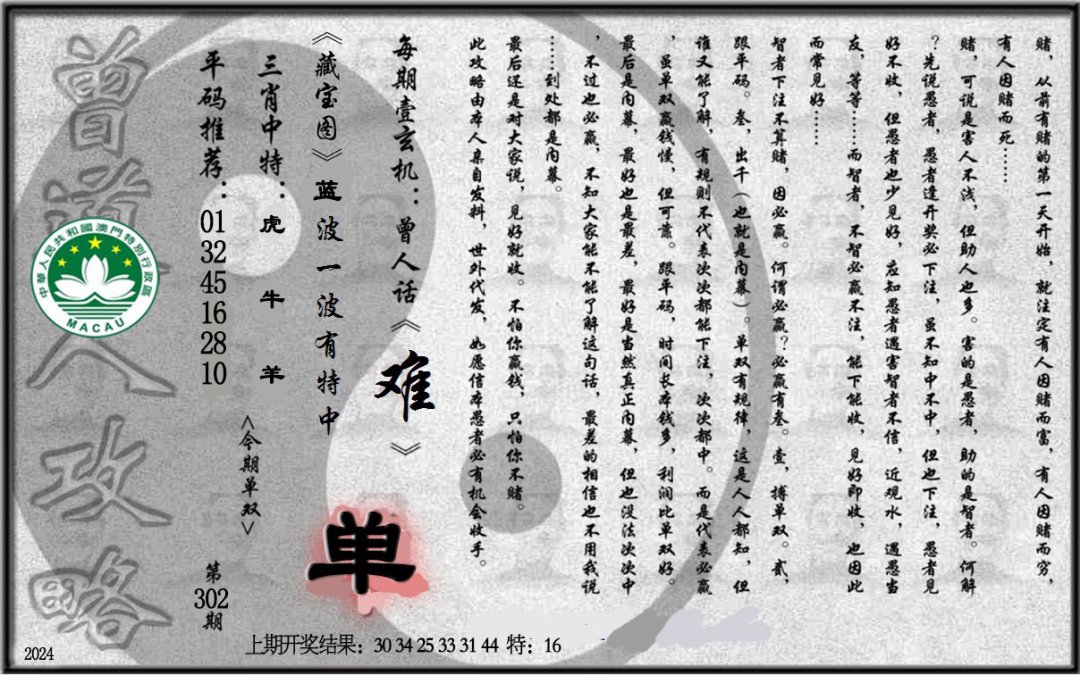 赌，从前有赌的第一天开始，就注定有人因赌而富，有人因赌而穷，
有人因赌而死……
赌，可说是害人不浅，但助人也多。害的是愚者，助的是智者。何解
？先说愚者，愚者逢开奖必下注，虽不知中不中，但也下注，愚者见
好不收，但愚者也少见好，应知愚者遇害智者不信，近观水，遇愚当
友，等等……而智者，不智必赢不注，能下能收，见好即收，也因此
而常见好……
智者下注不算赌，因必赢。何谓必赢？必赢有叁。壹，搏单双。贰，
跟平码。叁，出千（也就是内幕）。单双有规律，这是人人都知，但
谁又能了解，有规则不代表次次都能下注，次次都中。而是代表必赢
，虽单双赢钱慢，但可靠。跟平码，时间长本钱多，利润比单双好。
最后是内幕，最好也是最差，最好是当然真正内幕，但也没法次次中
，不过也必赢，不知大家能不能了解这句话，最差的相信也不用我说
……到处都是内幕。
最后还是对大家说，见好就收。不怕你赢钱，只怕你不赌。
此攻略由本人亲自发料，世外代发，如愿信本愚者必有机会收手。
每期壹玄机：曾人话《难》
《藏宝图》蓝波一波有特中
三肖中特：虎 牛 羊
平码推荐：01 32 45 16 28 10
<今期单双>
单
第302期
曾道人攻略
中華人民共和國澳門特別行政區
MACAU
上期开奖结果：30 34 25 33 31 44 特：16
2024